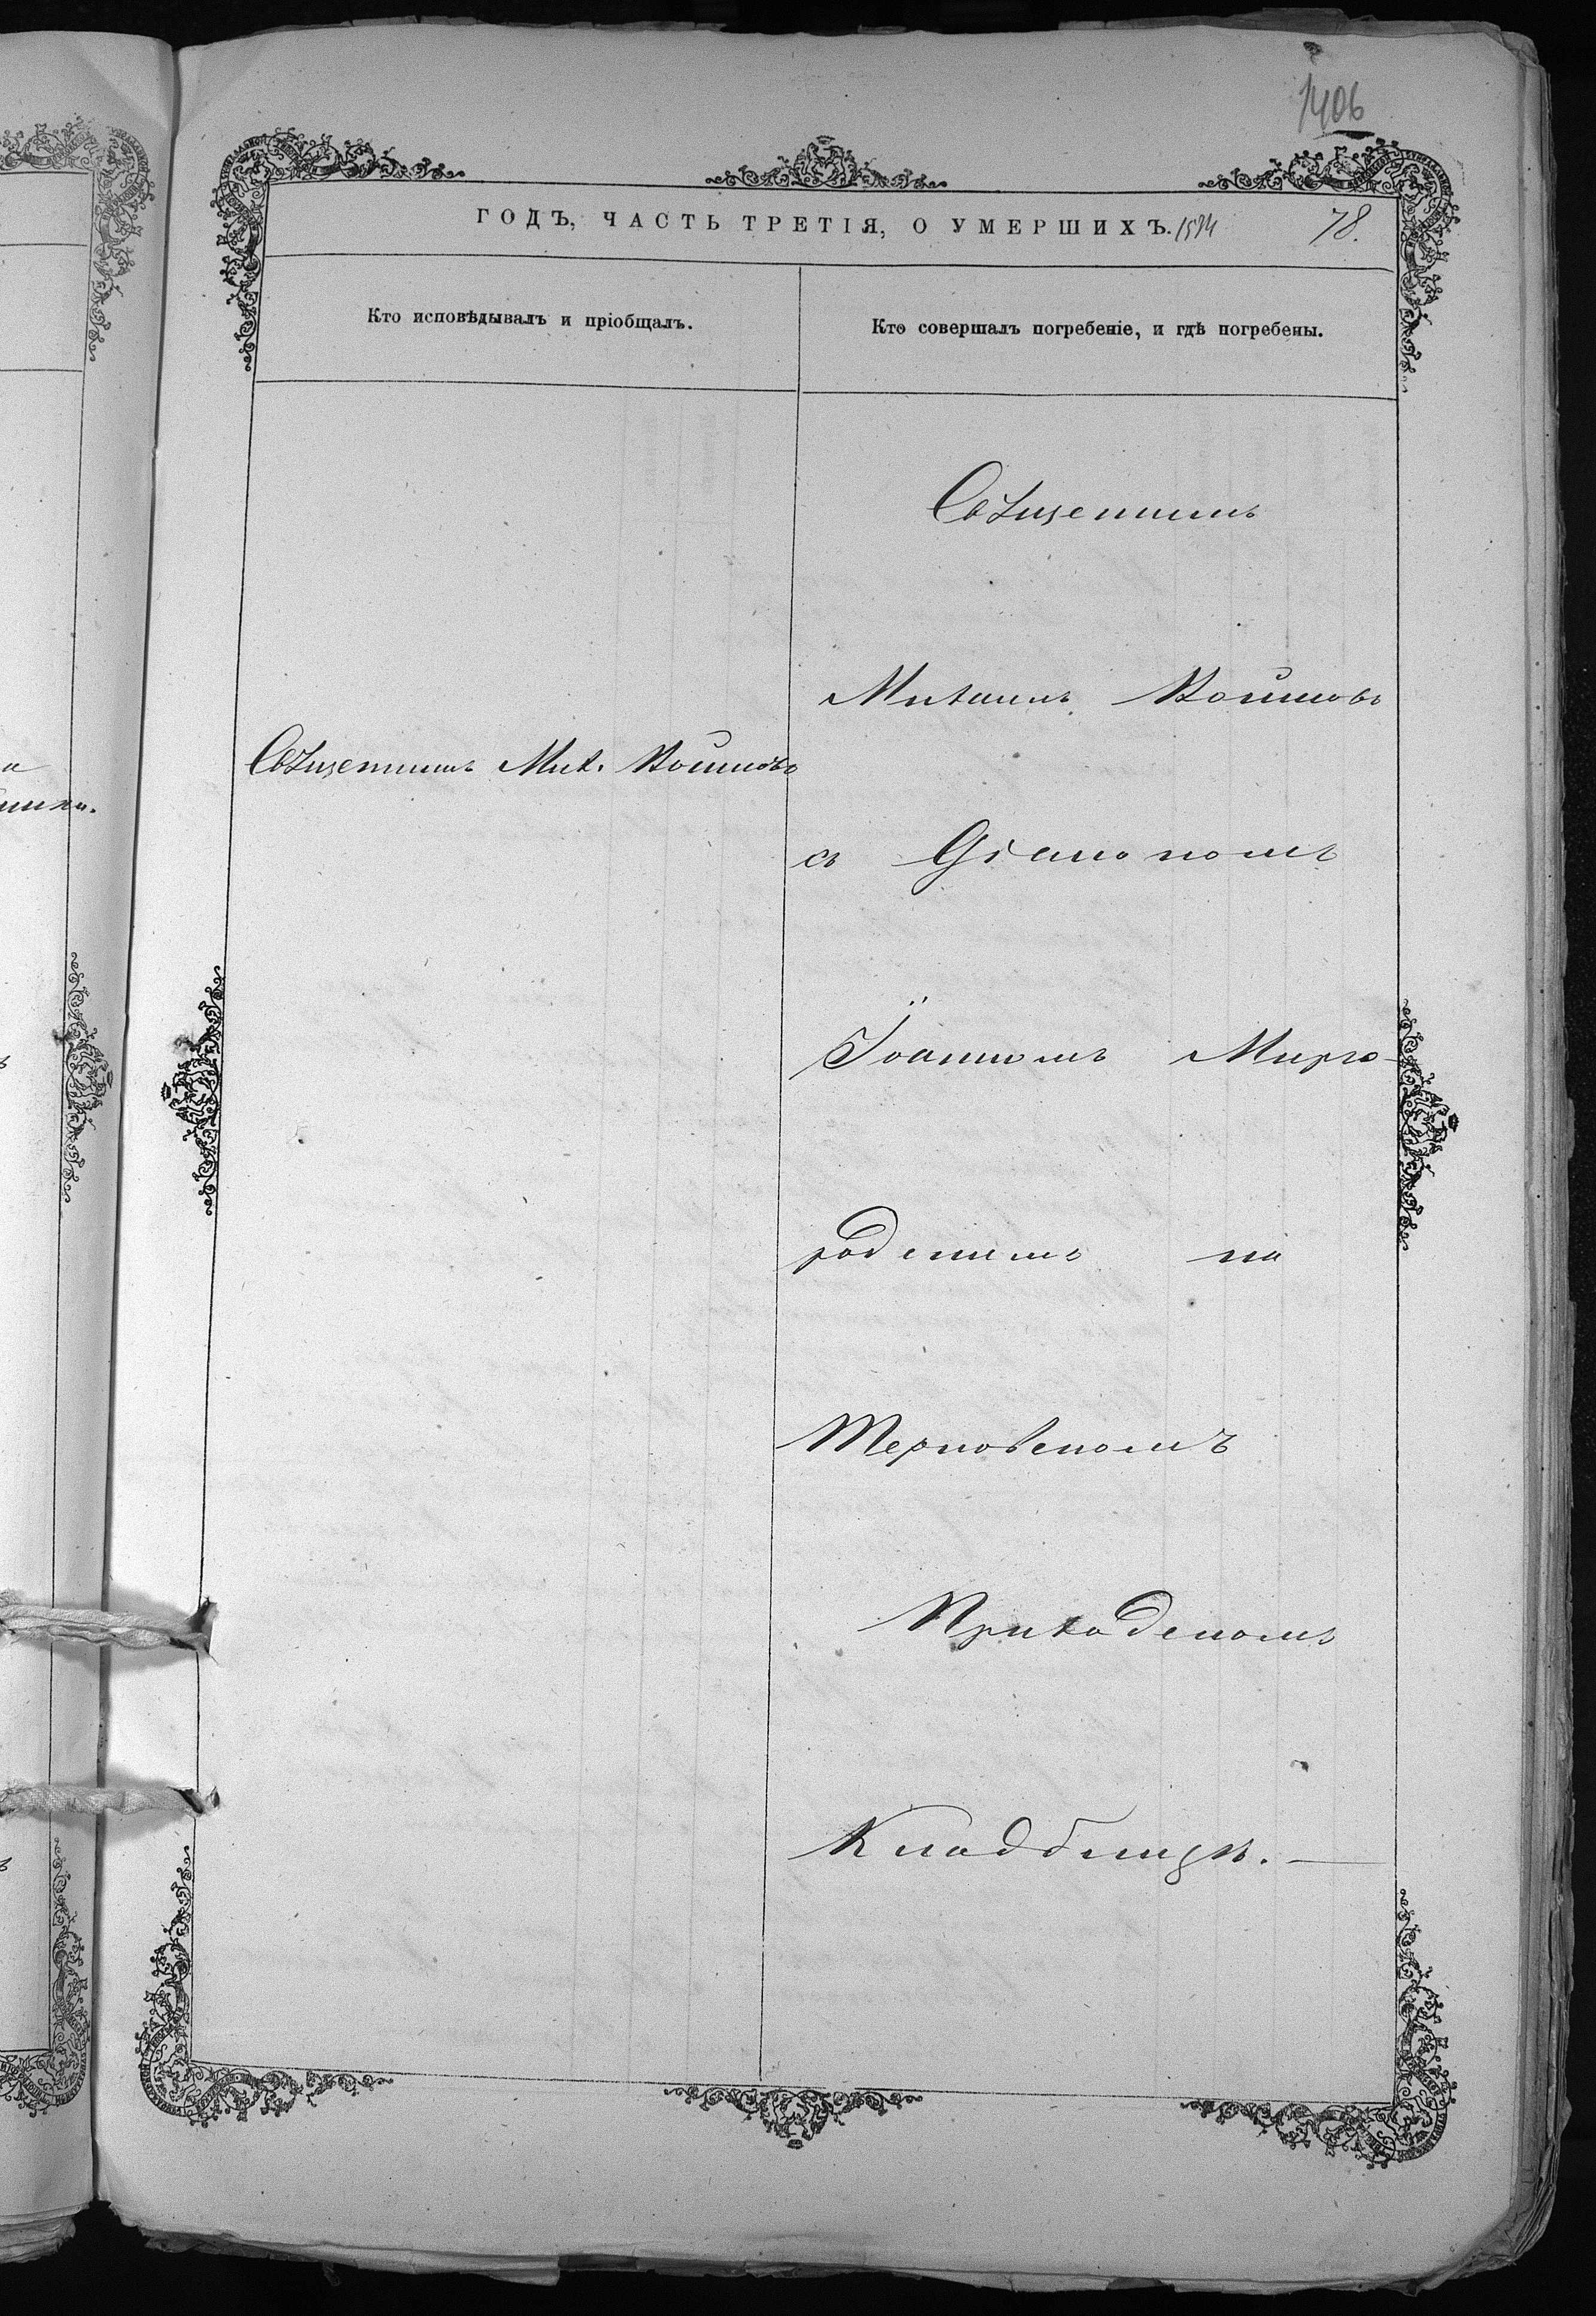 1406
ГОДЪ, ЧАСТЬ ТРЕТІЯ, О УМЕРШИХЪ.
78.
Кто исповѣдывалъ и пріобщалъ.
Кто совершалъ погребеніе, и гдѣ погребены.
Священникъ
Михаилъ Войновъ
Священникъ Мих. Войновъ
съ Діакономъ
Іоанномъ Миро-
родскимъ на
Терновскомъ
Приходскомъ
Кладбищѣ.